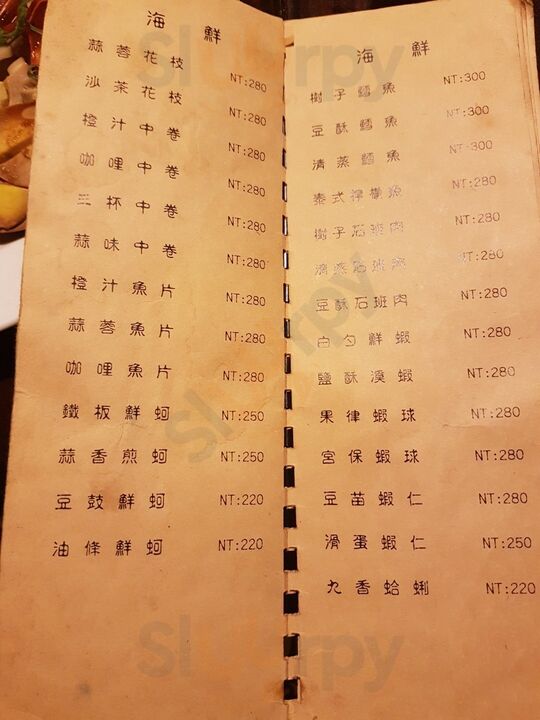 海鮮
蒜蓉花枝 NT:280
沙茶花枝 NT:280
橙汁中卷 NT:280
咖哩中卷 NT:280
三杯中卷 NT:280
蒜味中卷 NT:280
橙汁魚片 NT:280
蒜蓉魚片 NT:280
咖哩魚片 NT:280
鐵板鮮蚵 NT:250
蒜香煎蚵 NT:250
豆鼓鮮蚵 NT:220
油條鮮蚵 NT:220
海鮮
樹子鱈魚 NT:300
豆酥鱈魚 NT:300
清蒸鱈魚 NT:300
泰式檸檬魚 NT:280
樹子石斑肉 NT:280
清蒸石斑 NT:280
豆酥石斑肉 NT:280
白勺鮮蝦 NT:280
鹽酥溪蝦 NT:280
果律蝦球 NT:280
宮保蝦球 NT:280
豆苗蝦仁 NT:280
滑蛋蝦仁 NT:250
九香蛤蜊 NT:220
Slurrpy
Slurrpy
Slurrpy